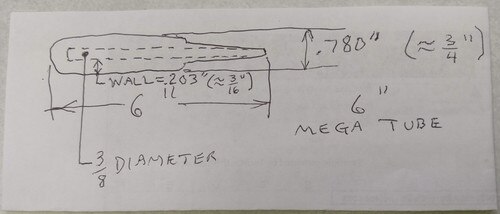 .780" (≈ 3/4")
WALL = .203" (≈ 3/16")
6"
6"
MEGA TUBE
3/8 DIAMETER